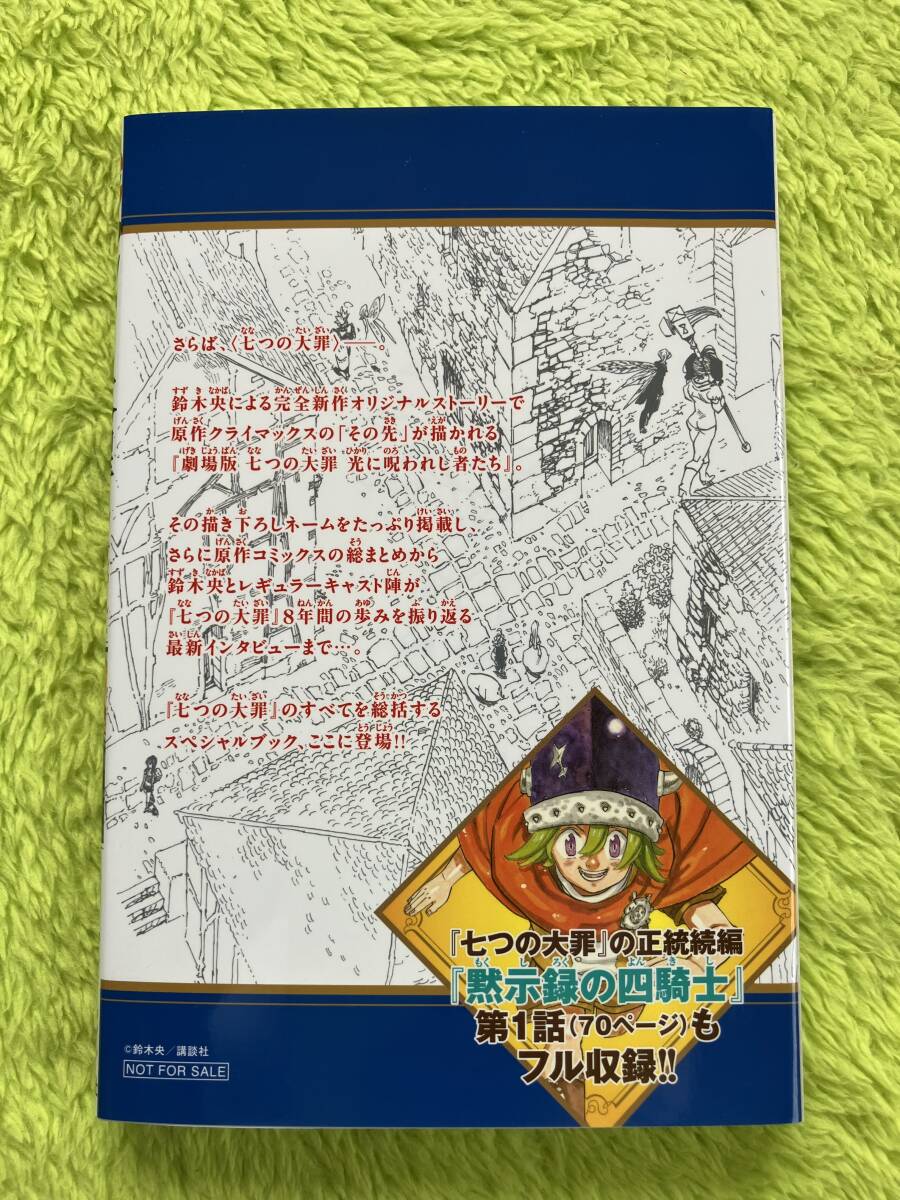 さらば、〈七つの大罪〉――。
鈴木央による完全新作オリジナルストーリーで
原作クライマックスの「その先」が描かれる
『劇場版 七つの大罪 光に呪われし者たち』。
その描き下ろしネームをたっぷり掲載し、
さらに原作コミックスの総まとめから
鈴木央とレギュラーキャスト陣が
『七つの大罪』8年間の歩みを振り返る
最新インタビューまで…。
『七つの大罪』のすべてを総括する
スペシャルブック、ここに登場!!
『七つの大罪』の正統続編
『黙示録の四騎士』
第1話(70ページ)も
フル収録!!
©鈴木央/講談社
NOT FOR SALE